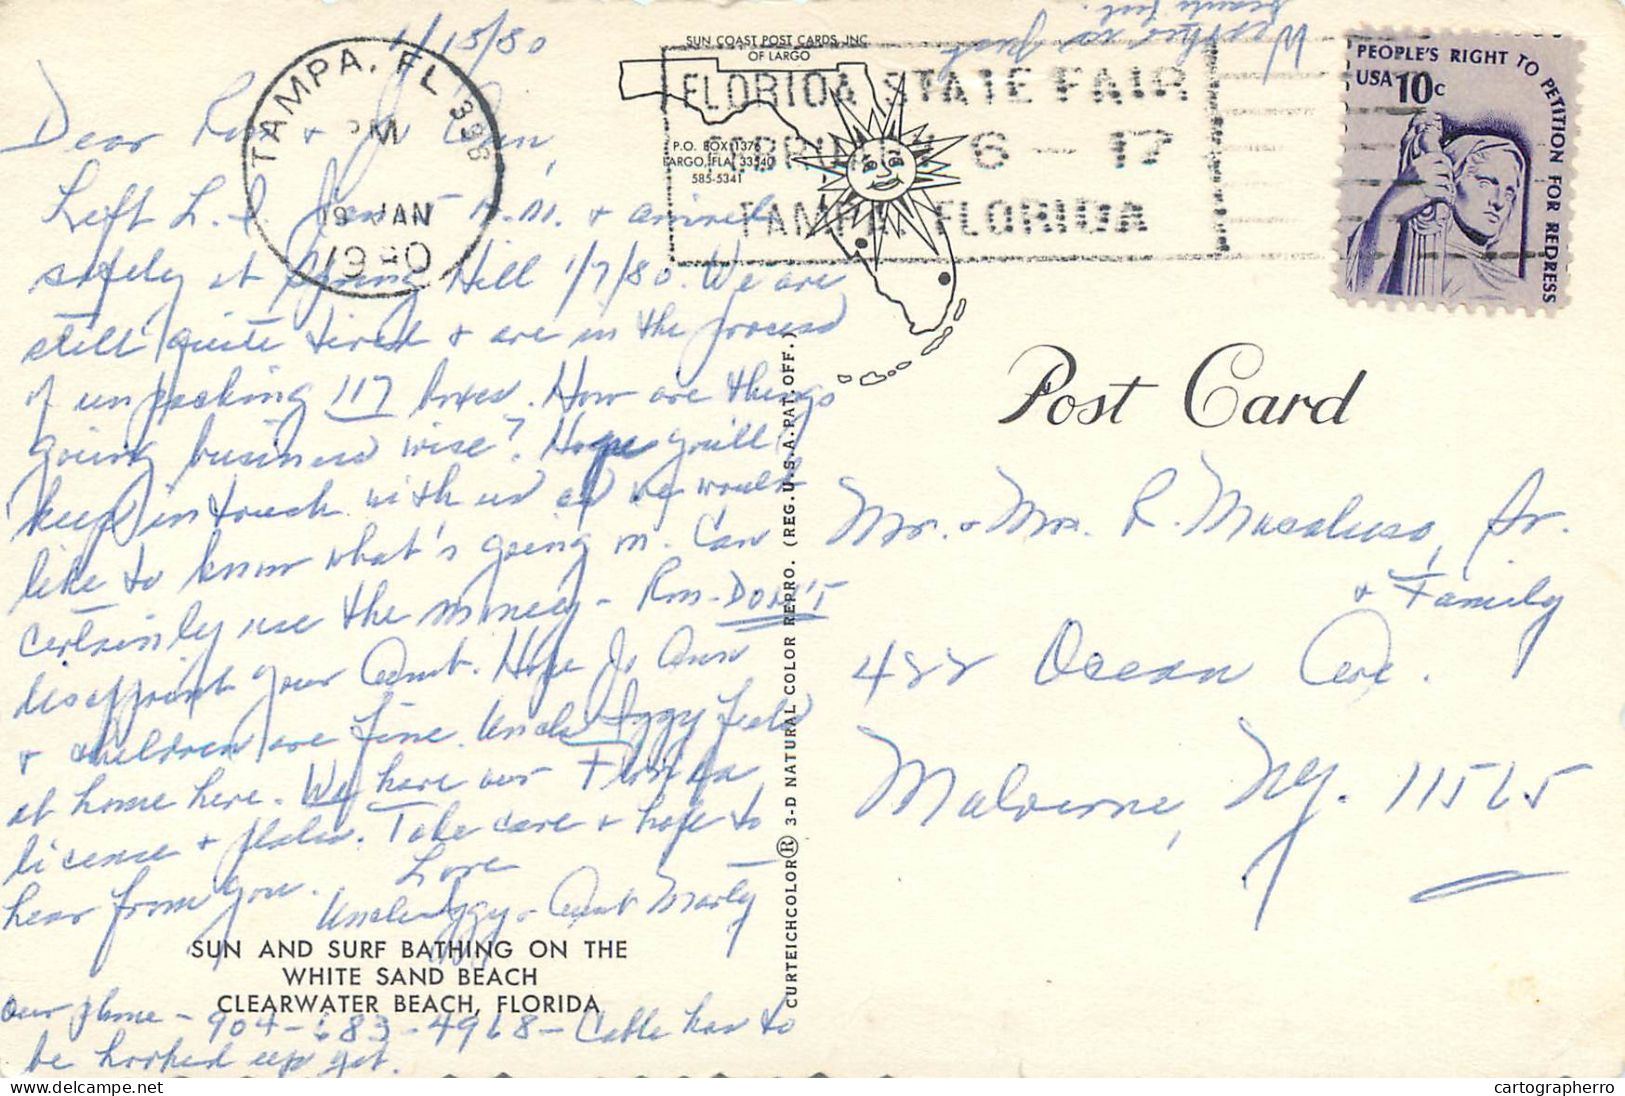 1/15/80
Weather is just
beautiful.
Dear Ron & Jo Ann,
Left L. I. Jan 5 A.M. & arrived
safely at Spring Hill 1/7/80. We are
still quite tired & are in the process
of unpacking 117 boxes. How are things
going business wise? Hope you'll
keep in touch with us as we would
like to know what's going on. Can
certainly use the money - Ron - DON'T
disappoint your Aunt. Hope Jo Ann
& children are fine. Uncle Iggy feels
at home here. We have our Florida
license & plates. Take care & hope to
hear from you. Love
Uncle Iggy & Aunt Marty
SUN AND SURF BATHING ON THE
WHITE SAND BEACH
CLEARWATER BEACH, FLORIDA
Our phone - 904-683-4968 - Cable has to
be hooked up yet.
TAMPA, FL 336
PM
19 JAN
1980
SUN COAST POST CARDS, INC.
OF LARGO
P.O. BOX 1376
LARGO, FLA. 33540
585-5341
FLORIDA STATE FAIR
FEBRUARY 6 - 17
TAMPA FLORIDA
PEOPLE'S RIGHT TO PETITION FOR REDRESS
USA 10c
CURTEICHCOLOR® 3-D NATURAL COLOR REPRO. (REG. U.S.A. PAT. OFF.)
Post Card
Mr. & Mrs. R. Musaluso, Jr.
& Family
422 Ocean Ave.
Malverne, NY. 11565
cartographerro